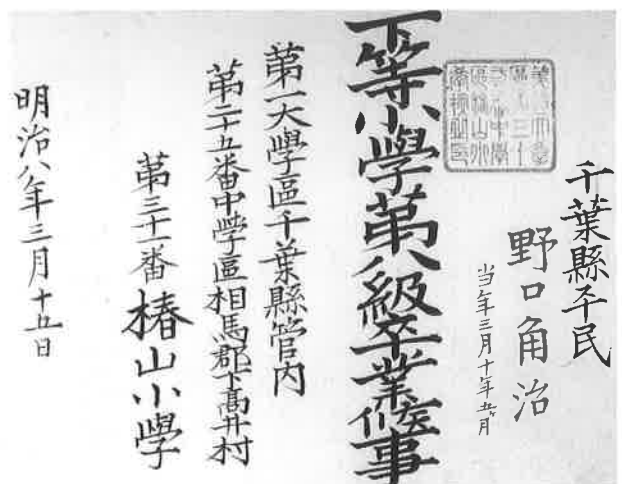 千葉縣平民
野口角治
当年三月十年五ヶ月
下等小學苐八級卒業候事
苐一大學區千葉縣管内
苐二十五番中學區相馬郡下髙井村
苐三十一番椿山小學
明治八年三月十五日